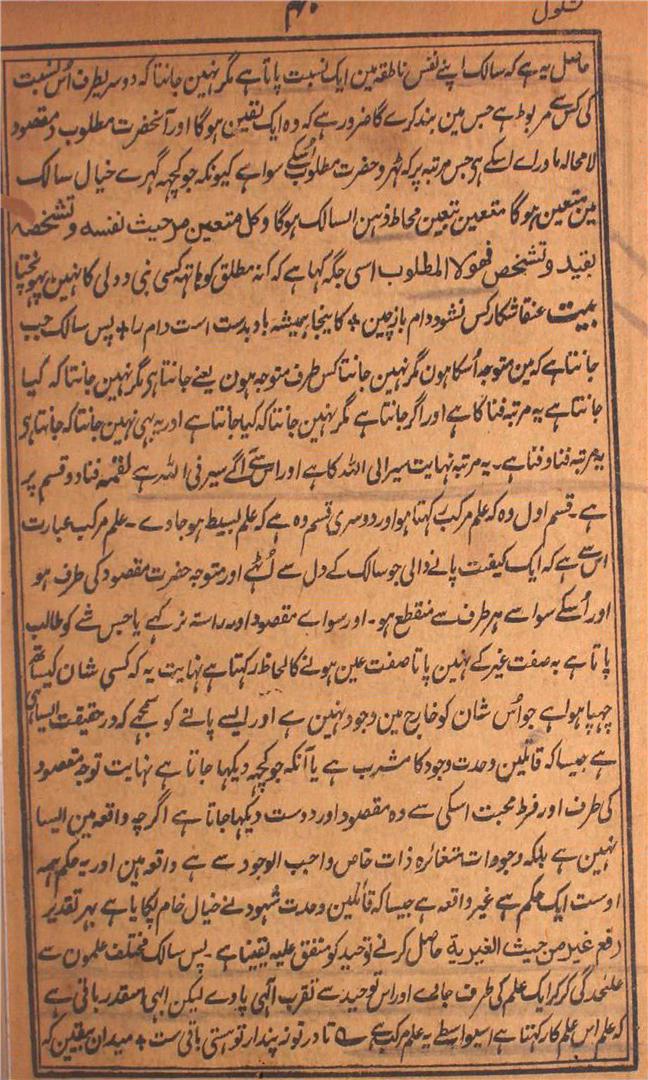 ۴۰
کشکول
حاصل یہ ہے کہ سالک اپنے نفس ناطقہ مین ایک نسبت پاتا ہے مگر نہین جانتا کہ دوسریطرف اُس نسبت
کی کس سے مربوط ہے جس مین بند کرے گا ضرور ہے کہ وہ ایک یقین ہوگا اور آنحضرت مطلوب و مقصود
لامحالہ ماوراے اسکے ہر جس مرتبہ پر کہ ٹھرو حضرت مطلوب اُسکے سوا ہے کیونکہ جو کچھہ گہرے خیال سالک
مین متعین ہوگا متعین بتعین محاط ذہن السالک ہوگا و کل متعین من حیث نفسہ و تشخصہ
بقید و تشخص فھولا المطلوب اسی جگہ کہا ہے کہ کنہ مطلق کو ہاتہہ کسی نبی و ولی کا نہین پہونچتا
بیت عنقا شکار کس نشود دام باز چین + کاینجا ہمیشہ باد بدست است دام را + پس سالک جب
جانتا ہے کہ مین متوجہ اُسکا ہون مگر نہین جانتا کس طرف متوجہ ہون یعنے جانتا ہی مگر نہین جانتا کہ کیا
جانتا ہے یہ مرتبہ فنا کا ہے اور اگر جانتا ہے مگر نہین جانتا کہ کیا جانتا ہے اور یہ بہی نہین جانتا کہ جانتا ہی
یہ مرتبہ فنا و فنا ہے ۔ یہ مرتبہ نہایت سیر الی اللہ کا ہے اور اس سے آگے سیر فی اللہ ہے لقمہ فنا دو قسم پر
ہے ۔ قسم اول وہ کہ علم مرکب رکہتا ہو اور دوسری قسم وہ ہے کہ علم بسیط ہو جاوے ۔ علم مرکب عبارت
اس سے ہے کہ ایک کیفت پانے والی جو سالک کے دل سے اُٹہے اور متوجہ حضرت مقصود کی طرف ہو
اور اُسکے سوا سے ہر طرف سے منقطع ہو ۔ اور سواے مقصود اور راستہ نر کہے یا جس شے کو طالب
پاتا ہے بہ صفت غیر کے نہین پاتا صفت عین ہونے کا لحاظ رکہتا ہے نہایت یہ کہ کسی شان کیساتھ
چہپا ہوا ہے جو اُس شان کو خارج مین وجود نہین ہے اور ایسے پانے کو سمجہے کہ در حقیقت ایسا ہی
ہے جیسا کہ قائلین وحدت وجود کا مشرب ہے یا آنکہ جو کچہہ دیکہا جاتا ہے نہایت توجہ مقصود
کی طرف اور فرط محبت اسکی سے وہ مقصود اور دوست دیکہا جاتا ہے اگرچہ واقعہ مین ایسا
نہین ہے بلکہ وجودات متغائرہ ذات خاص واجب الوجود سے ہے واقعہ مین اور یہ حکم ہمہ
اوست ایک حکم ہے غیر واقعہ ہے جیسا کہ قائلین وحدت شہود نے خیال خام پکایا ہے بہر تقدیر
رفع غیر من حیث الغیریة حاصل کرنے توحید کو متفق علیہ یقینا ہے ۔ پس سالک مختلف علمون سے
علٰحدگی کر کر ایک علم کی طرف جائے اور اس توحید سے تقرب الٰہی پاوے لیکن ابہی مقدر باقی ہے
کہ علم اس علم کا رکہتا ہے اسیواسطے یہ علم مرکب ہے تا در تو ز پندار تو ہستی باقی ست + میدان بیقین کہ